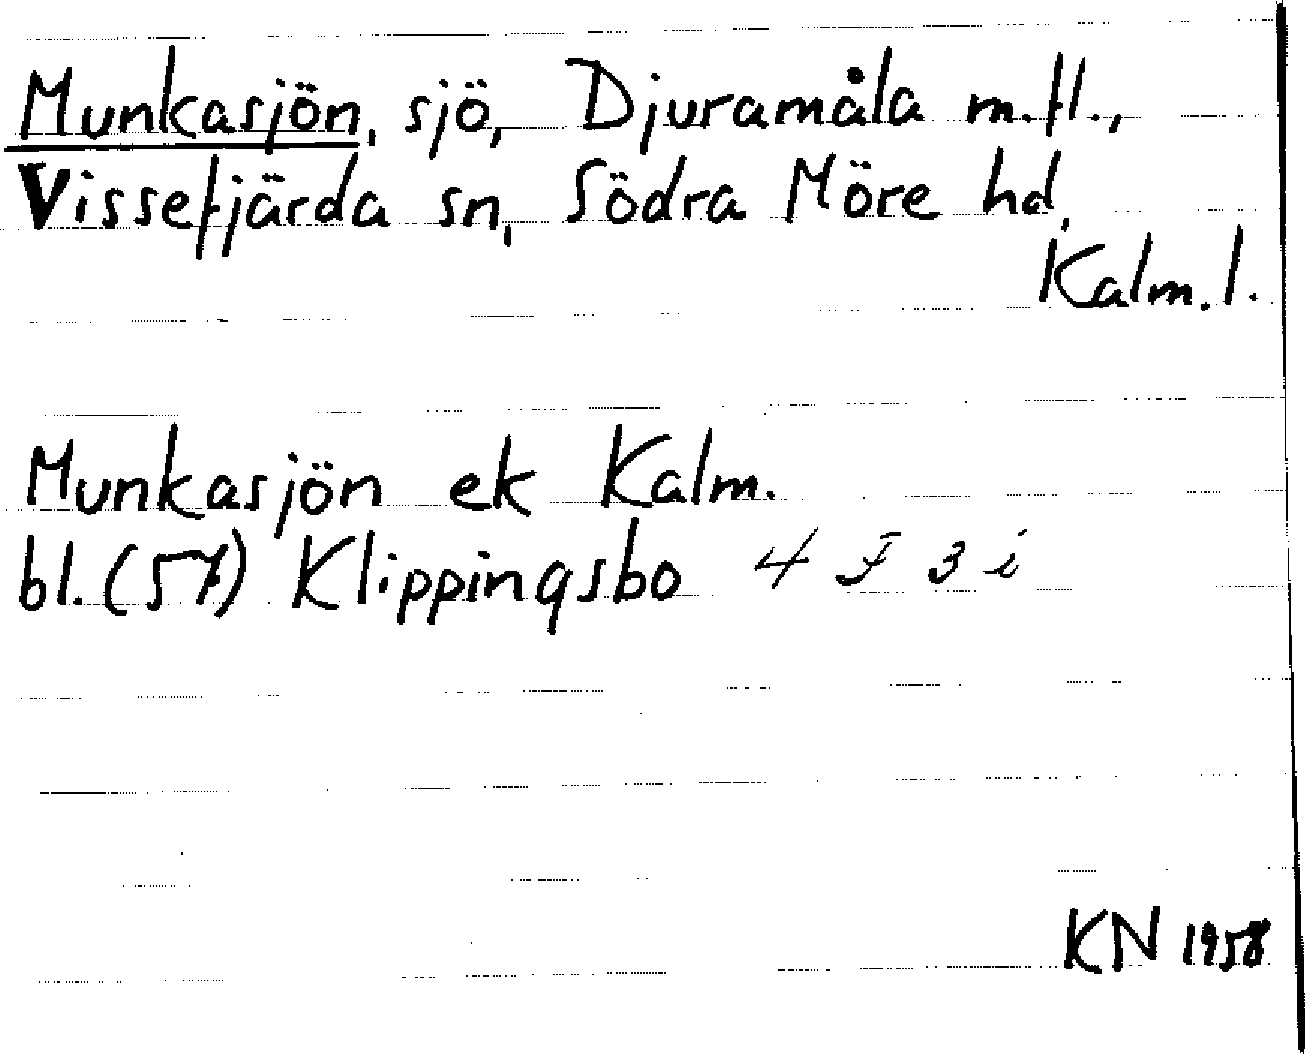 Munkasjön, sjö, Djuramåla m.fl.,
Vissefjärda sn, Södra Möre hd,
Kalm. l.
Munkasjön ek Kalm.
bl. (57) Klippingsbo 4 F 3 i
KN 1958